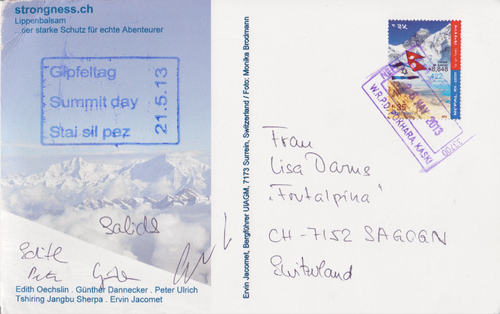 strongness.ch
Lippenbalsam
...der starke Schutz für echte Abenteurer
Gipfeltag
Summit day
Stai sil pez
21.5.13
Salida
Edith
Peter
Günther
Edith Oechslin . Günther Dannecker . Peter Ulrich
Tshiring Jangbu Sherpa . Ervin Jacomet
Ervin Jacomet, Bergführer UIAGM, 7173 Surrein, Switzerland / Foto: Monika Brodmann
MAY 2013
W.R.P.D. POKHARA, KASKI
33700
Frau
Lisa Darms
"Frutalpina"
CH-7152 SAGOGN
Switzerland